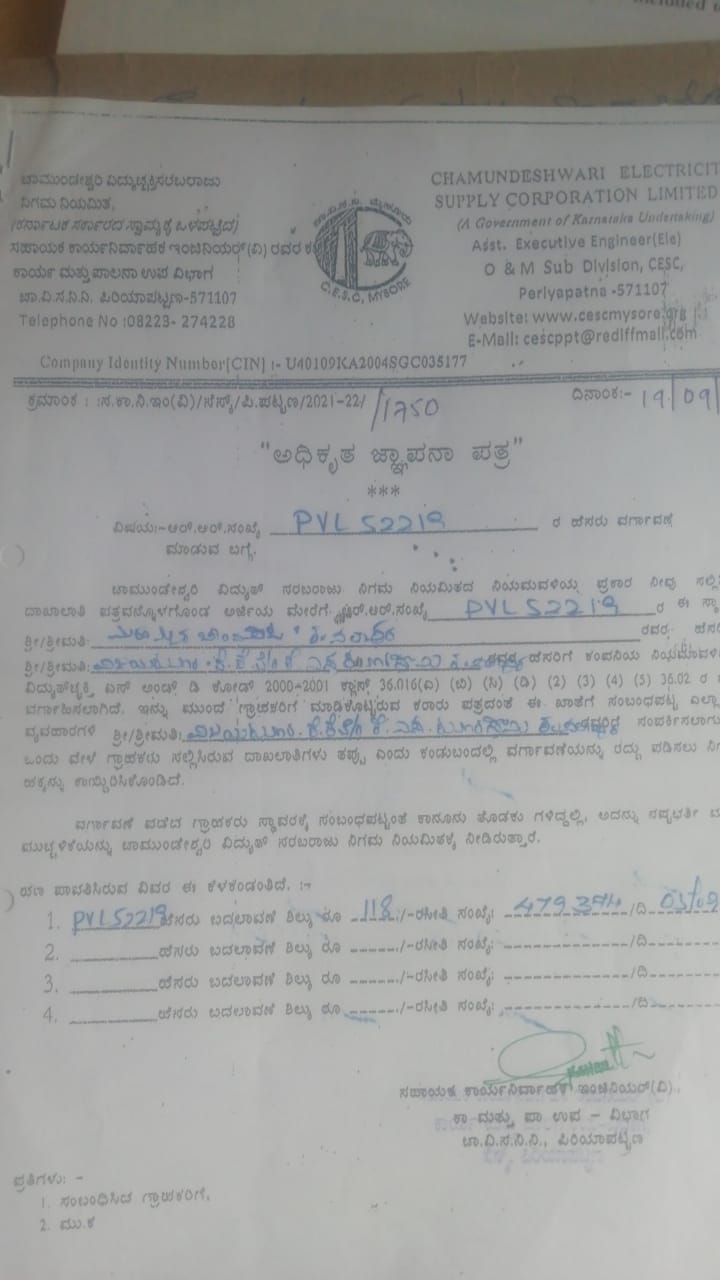 included t
ಚಾಮುಂಡೇಶ್ವರಿ ವಿದ್ಯುಚ್ಛಕ್ತಿಸರಬರಾಜು
ನಿಗಮ ನಿಯಮಿತ,
(ಕರ್ನಾಟಕ ಸರ್ಕಾರದ ಸ್ವಾಮ್ಯಕ್ಕೆ ಒಳಪಟ್ಟಿದೆ)
ಸಹಾಯಕ ಕಾರ್ಯನಿರ್ವಾಹಕ ಇಂಜಿನಿಯರ್(ವಿ) ರವರ ಕ
ಕಾರ್ಯ ಮತ್ತು ಪಾಲನಾ ಉಪ ವಿಭಾಗ
ಚಾ.ವಿ.ಸ.ನಿ.ನಿ. ಪಿರಿಯಾಪಟ್ಟಣ-571107
Telephone No :08223- 274228
C.E.S.C, MYSORE
CHAMUNDESHWARI ELECTRICIT
SUPPLY CORPORATION LIMITED
(A Government of Karnataka Undertaking)
Asst. Executive Engineer(Ele)
O & M Sub Division, CESC,
Periyapatna -571107
Website: www.cescmysore.org
E-Mail: cescppt@rediffmail.com
Company Identity Number[CIN] :- U40109KA2004SGC035177
ಕ್ರಮಾಂಕ : :ಸ.ಕಾ.ನಿ.ಇಂ(ವಿ)/ಸೆಸ್ಕ್/ಪಿ.ಪಟ್ಟಣ/2021-22/ /1750
ದಿನಾಂಕ:- 19/09/
"ಅಧಿಕೃತ ಜ್ಞಾಪನಾ ಪತ್ರ"
***
ವಿಷಯ:-ಆರ್.ಆರ್.ಸಂಖ್ಯೆ PVL 52219 ರ ಹೆಸರು ವರ್ಗಾವಣೆ
ಮಾಡುವ ಬಗ್ಗೆ.
ಚಾಮುಂಡೇಶ್ವರಿ ವಿದ್ಯುತ್ ಸರಬರಾಜು ನಿಗಮ ನಿಯಮಿತದ ನಿಯಮವಳಿಯ ಪ್ರಕಾರ ನೀವು ಸಲ್ಲಿ
ದಾಖಲಾತಿ ಪತ್ರವನ್ನೊಳಗೊಂಡ ಅರ್ಜಿಯ ಮೇರೆಗೆ ಆರ್.ಆರ್.ಸಂಖ್ಯೆ PVL 52219 ರ ಈ ಸ್ಥಾ
ಶ್ರೀ/ಶ್ರೀಮತಿ: ರವರ: ಹೆಸ
ಶ್ರೀ/ಶ್ರೀಮತಿ: ಹೆಸರಿಗೆ ಕಂಪನಿಯ ನಿಯಮಾವಳಿ
ವಿದ್ಯುತ್‌ಚ್ಛಕ್ತಿ ಎಸ್ ಅಂಡ್ ಡಿ ಕೋಡ್ 2000-2001 ಕ್ಲಾಸ್ 36.016(ಎ) (ಬಿ) (ಸಿ) (ಡಿ) (2) (3) (4) (5) 36.02 ರ
ವರ್ಗಾಹಿಸಲಾಗಿದೆ. ಇನ್ನು ಮುಂದೆ ಗ್ರಾಹಕರಿಗೆ ಮಾಡಿಕೊಟ್ಟಿರುವ ಕರಾರು ಪತ್ರದಂತೆ ಈ ಖಾತೆಗೆ ಸಂಬಂಧಪಟ್ಟ ಎಲ್ಲಾ
ವ್ಯವಹಾರಗಳಿ ಶ್ರೀ/ಶ್ರೀಮತಿ: ಸಂಪರ್ಕಿಸಲಾಗು
ಒಂದು ವೇಳೆ ಗ್ರಾಹಕರು ಸಲ್ಲಿಸಿರುವ ದಾಖಲಾತಿಗಳು ತಪ್ಪು ಎಂದು ಕಂಡುಬಂದಲ್ಲಿ ವರ್ಗಾವಣೆಯನ್ನು ರದ್ದು ಪಡಿಸಲು ನಿಗ
ಹಕ್ಕನ್ನು ಕಾಯ್ದಿರಿಸಿಕೊಂಡಿದೆ.
ವರ್ಗಾವಣೆ ಪಡೆದ ಗ್ರಾಹಕರು ಸ್ಥಾವರಕ್ಕೆ ಸಂಬಂಧಪಟ್ಟಂತೆ ಕಾನೂನು ತೊಡಕು ಗಳಿದ್ದಲ್ಲಿ, ಅದನ್ನು
ಮುಚ್ಚಳಿಕೆಯನ್ನು ಚಾಮುಂಡೇಶ್ವರಿ ವಿದ್ಯುತ್ ಸರಬರಾಜು ನಿಗಮ ನಿಯಮಿತಕ್ಕೆ ನೀಡಿರುತ್ತಾರೆ.
ಹಣ ಪಾವತಿಸಿರುವ ವಿವರ ಈ ಕೆಳಕಂಡಂತಿದೆ. :-
1. PVL52219 ಹೆಸರು ಬದಲಾವಣೆ ಶಿಲ್ಕು ರೂ 118/-ರಸೀತಿ ಸಂಖ್ಯೆ: 479394 /ದಿ 03/09
2. ಹೆಸರು ಬದಲಾವಣೆ ಶಿಲ್ಕು ರೂ /-ರಸೀತಿ ಸಂಖ್ಯೆ: /ದಿ
3. ಹೆಸರು ಬದಲಾವಣೆ ಶಿಲ್ಕು ರೂ /-ರಸೀತಿ ಸಂಖ್ಯೆ: /ದಿ
4. ಹೆಸರು ಬದಲಾವಣೆ ಶಿಲ್ಕು ರೂ /-ರಸೀತಿ ಸಂಖ್ಯೆ: /ದಿ
ಸಹಾಯಕ ಕಾರ್ಯನಿರ್ವಾಹಕ ಇಂಜಿನಿಯರ್(ವಿ).,
ಕಾ ಮತ್ತು ಪಾ ಉಪ – ವಿಭಾಗ
ಚಾ.ವಿ.ಸ.ನಿ.ನಿ., ಪಿರಿಯಾಪಟ್ಟಣ
ಪ್ರತಿಗಳು: -
1. ಸಂಬಂಧಿಸಿದ ಗ್ರಾಹಕರಿಗೆ,
2. ಮು.ಕ